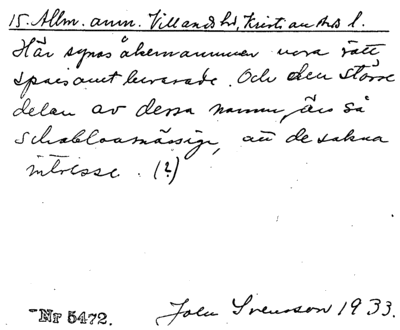 15. Allm. anm. Villands hd, Kristianstads l.
Här synas åkernamnen vara rätt
sparsamt bevarade. Och den större
delen av dessa namn, äro så
schablonmässiga, att de sakna
intresse. (?)
Nr 5472.
John Svensson 1933.